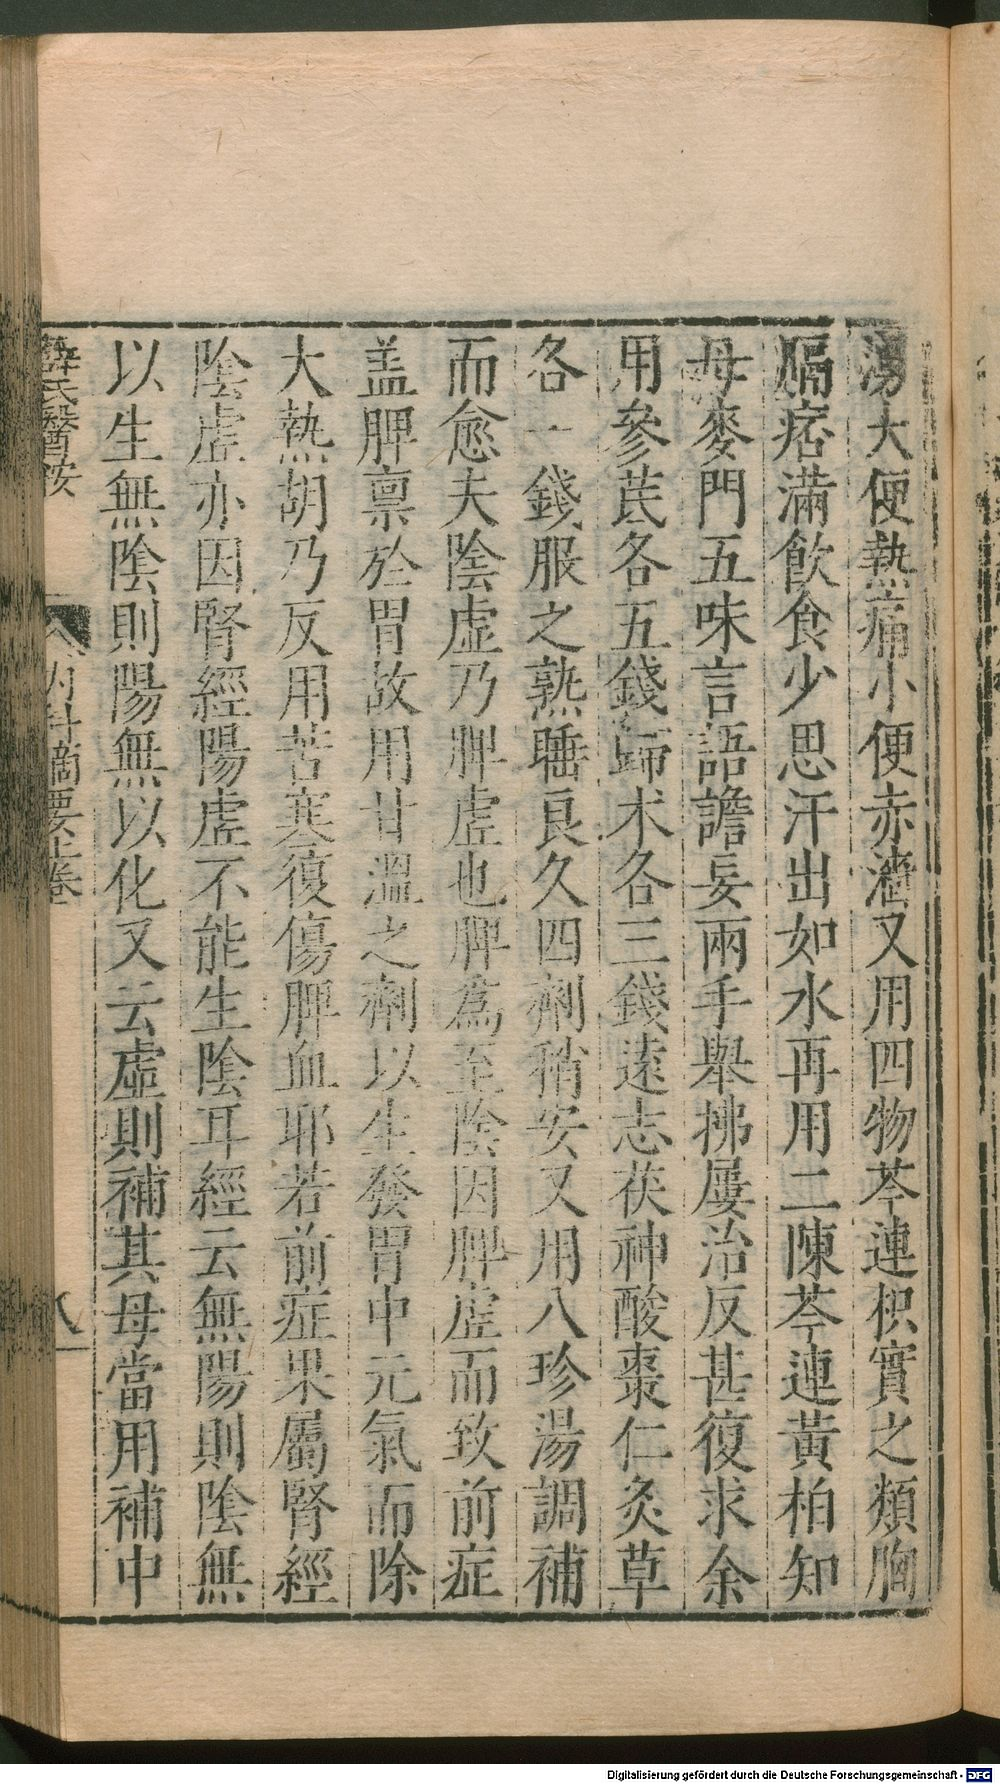 湯大便熱痛小便赤澁又用四物芩連枳實之類胸
膈痞滿飲食少思汗出如水再用二陳芩連黃柏知
母麥門五味言語譫妄兩手舉拂屢治反甚復求余
用參芪各五錢歸术各三錢遠志茯神酸棗仁炙草
各一錢服之熟睡良久四劑稍安又用八珍湯調補
而愈夫陰虛乃脾虛也脾為至陰因脾虛而致前症
盖脾禀於胃故用甘溫之劑以生發胃中元氣而除
大熱胡乃反用苦寒復傷脾血耶若前症果屬腎經
陰虛亦因腎經陽虛不能生陰耳經云無陽則陰無
以生無陰則陽無以化又云虛則補其母當用補中
薛氏醫按
內科摘要上卷
八
Digitalisierung gefördert durch die Deutsche Forschungsgemeinschaft - DFG